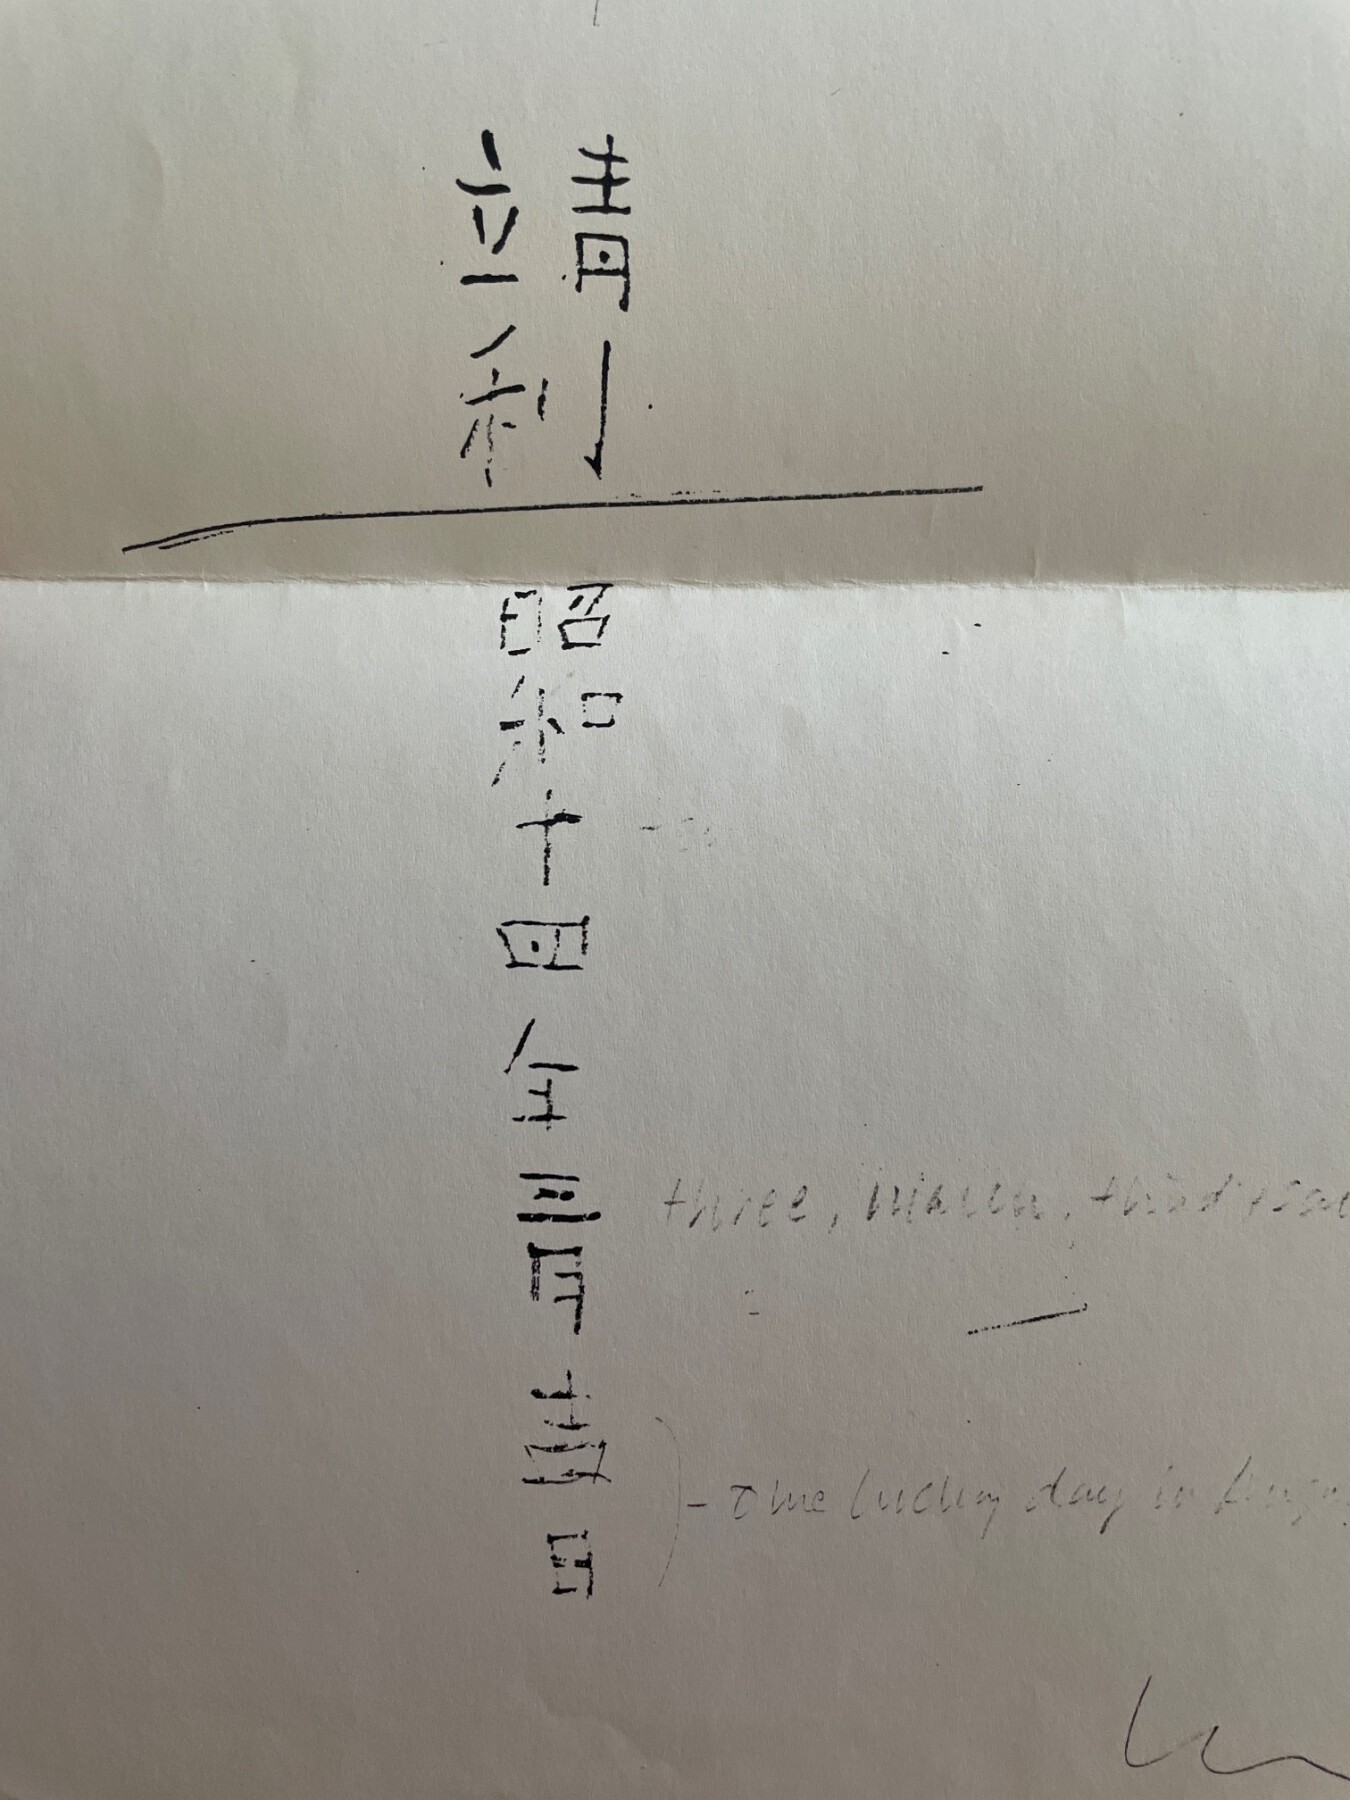 靖利
昭和十四年三月吉日
three, March, third
lucky day in